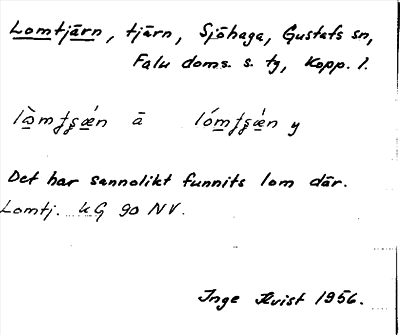 Lomtjärn, tjärn, Sjöhaga, Gustafs sn,
Falu doms. s. tg, Kopp. l.
ä y
Det har sannolikt funnits lom där.
Lomtj. kG 90 NV.
Inge Kvist 1956.